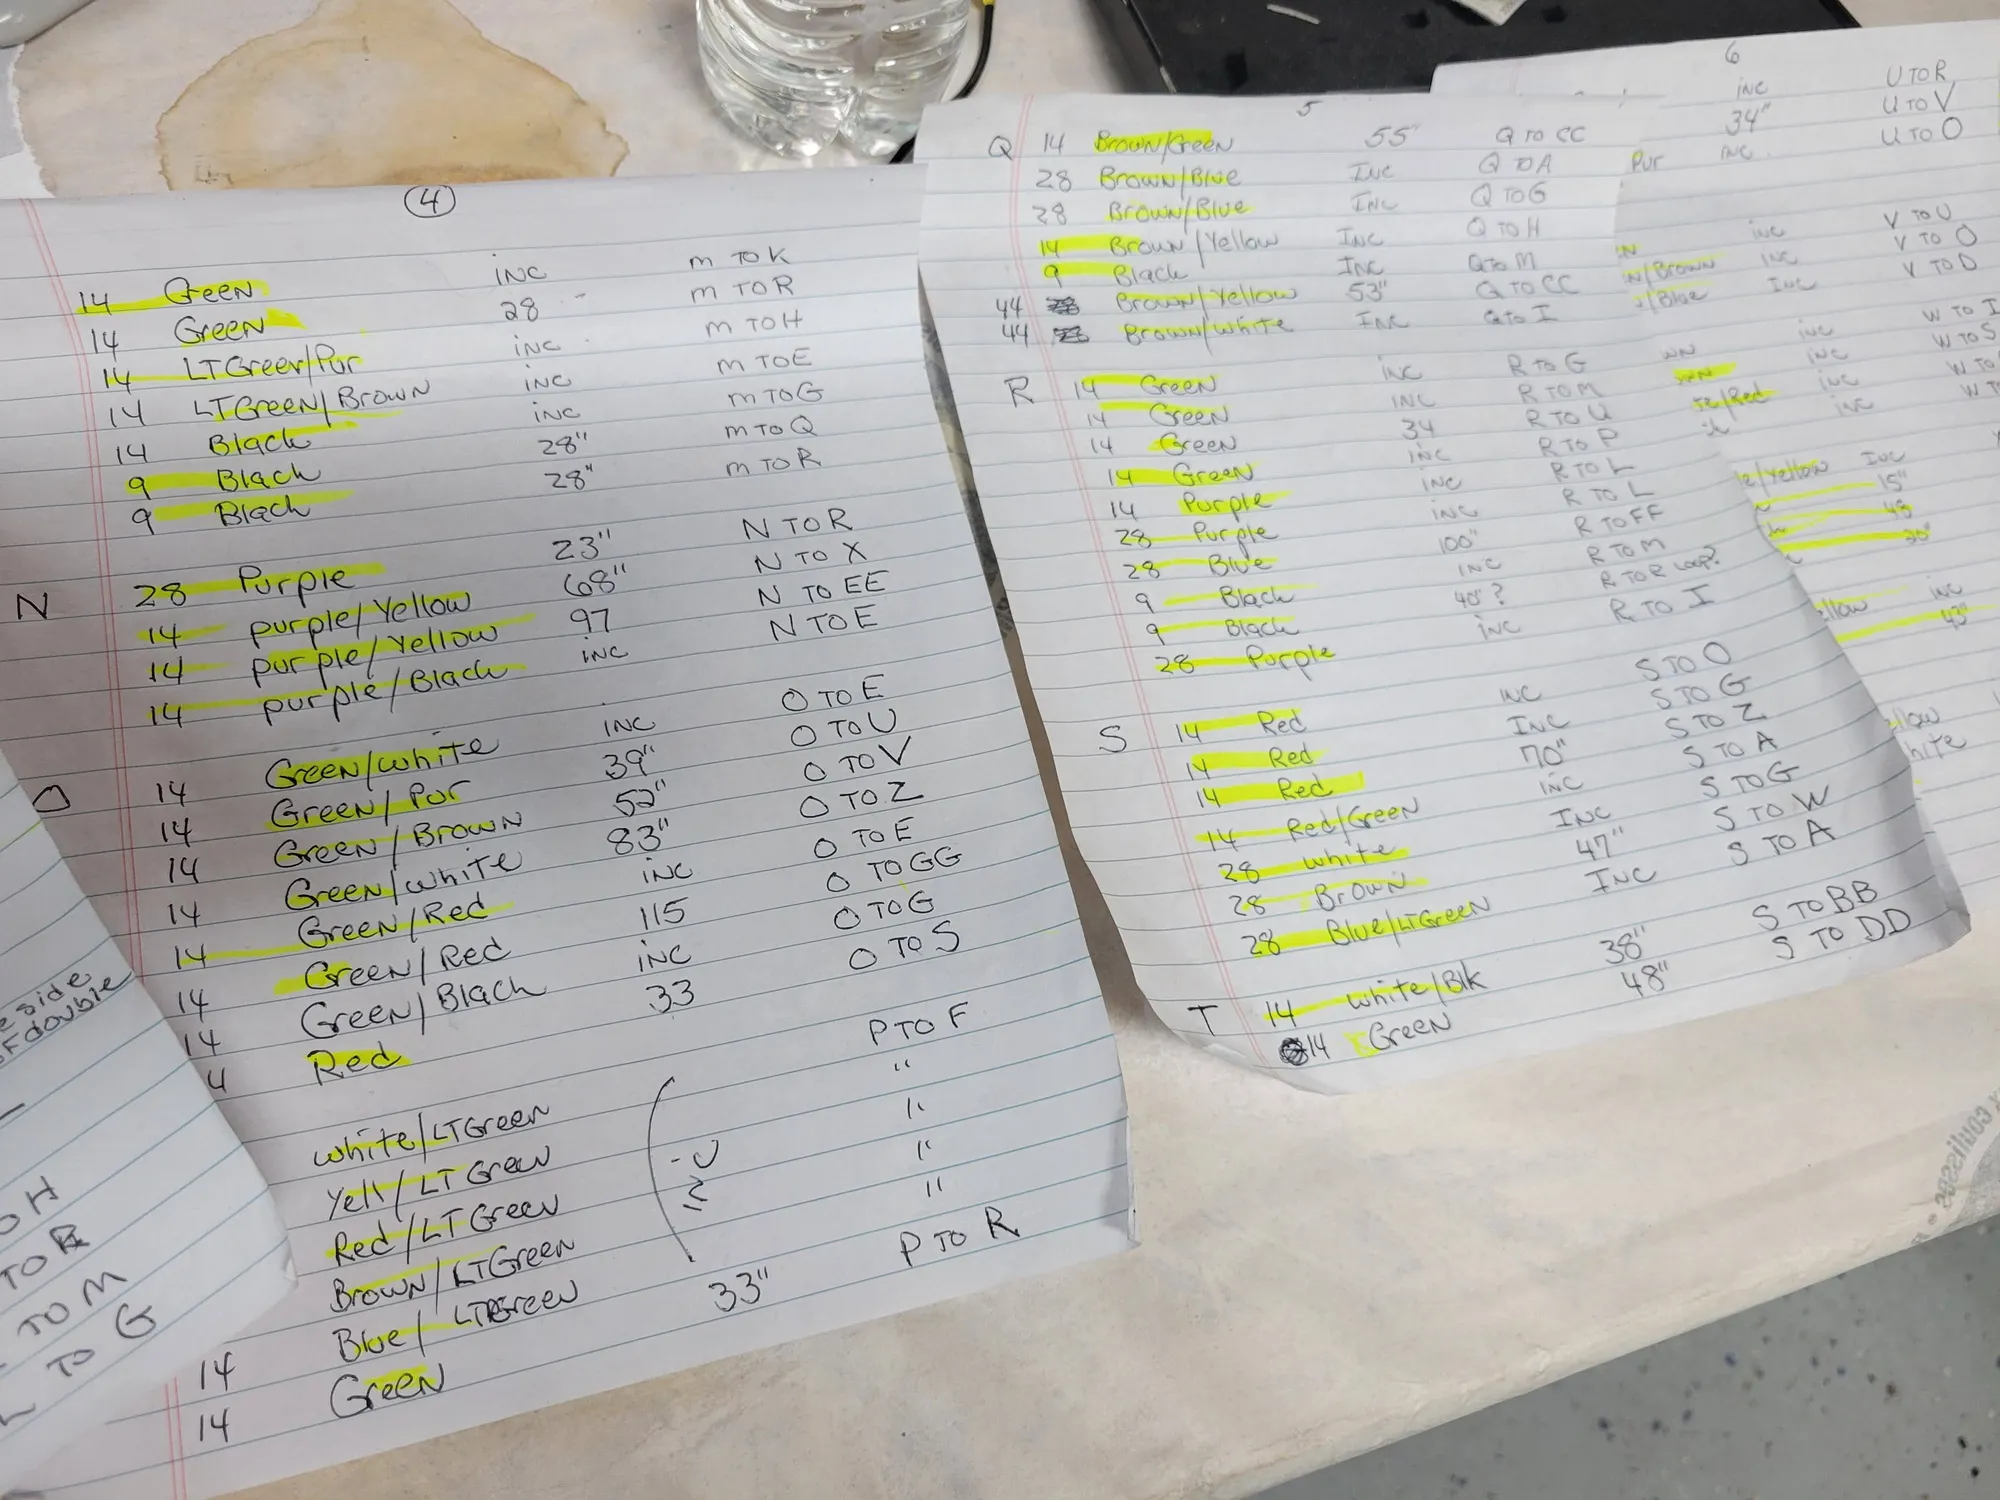 4
14 Green inc m TO K
14 Green 28 m TO R
14 LTGreen/Pur inc m TO H
14 LTGreen/Brown inc m TO E
14 Black inc m TO G
9 Black 28" m TO Q
9 Black 28" m TO R
N 28 Purple 23" N TO R
14 purple/Yellow 68" N TO X
14 purple/Yellow 97 N TO EE
14 purple/Black inc N TO E
O 14 Green/White inc O TO E
14 Green/Pur 39" O TO U
14 Green/Brown 52" O TO V
14 Green/White 83" O TO Z
14 Green/Red inc O TO E
14 Green/Red 115 O TO GG
14 Green/Black inc O TO G
4 Red 33 O TO S
White/LTGreen P TO F
Yell/LT Green "
Red/LT Green "
Brown/LTGreen "
14 Blue/LTGreen "
14 Green 33" P TO R
e side
F double
O H
TO R
TO M
TO G
5
Q 14 Brown/Green 55" Q TO CC
28 Brown/Blue Inc Q TO A
28 Brown/Blue Inc Q TO G
14 Brown/Yellow Inc Q TO H
9 Black Inc Q TO M
44 Brown/Yellow 53" Q TO CC
44 Brown/White Inc Q TO I
R 14 Green inc R TO G
14 Green INC R TO M
14 Green 34 R TO U
14 Green inc R TO P
14 Purple inc R TO L
28 Purple inc R TO L
28 Blue 100" R TO FF
9 Black inc R TO M
9 Black 40"? R TO R Loop?
28 Purple inc R TO I
S 14 Red INC S TO O
14 Red Inc S TO G
14 Red 70" S TO Z
14 Red/Green inc S TO A
28 White Inc S TO G
28 Brown 47" S TO W
28 Blue/LTGreen Inc S TO A
T 14 White/Blk 38" S TO BB
14 Green 48" S TO DD
6
inc U TO R
34" U TO V
Pur inc U TO O
inc V TO U
N/Brown inc V TO O
/Blue Inc V TO D
inc W TO I
inc W TO S
TE/Red inc W TO
inc W T
e/Yellow Inc
15"
43
30"
ellow inc
43"
ellow
hite